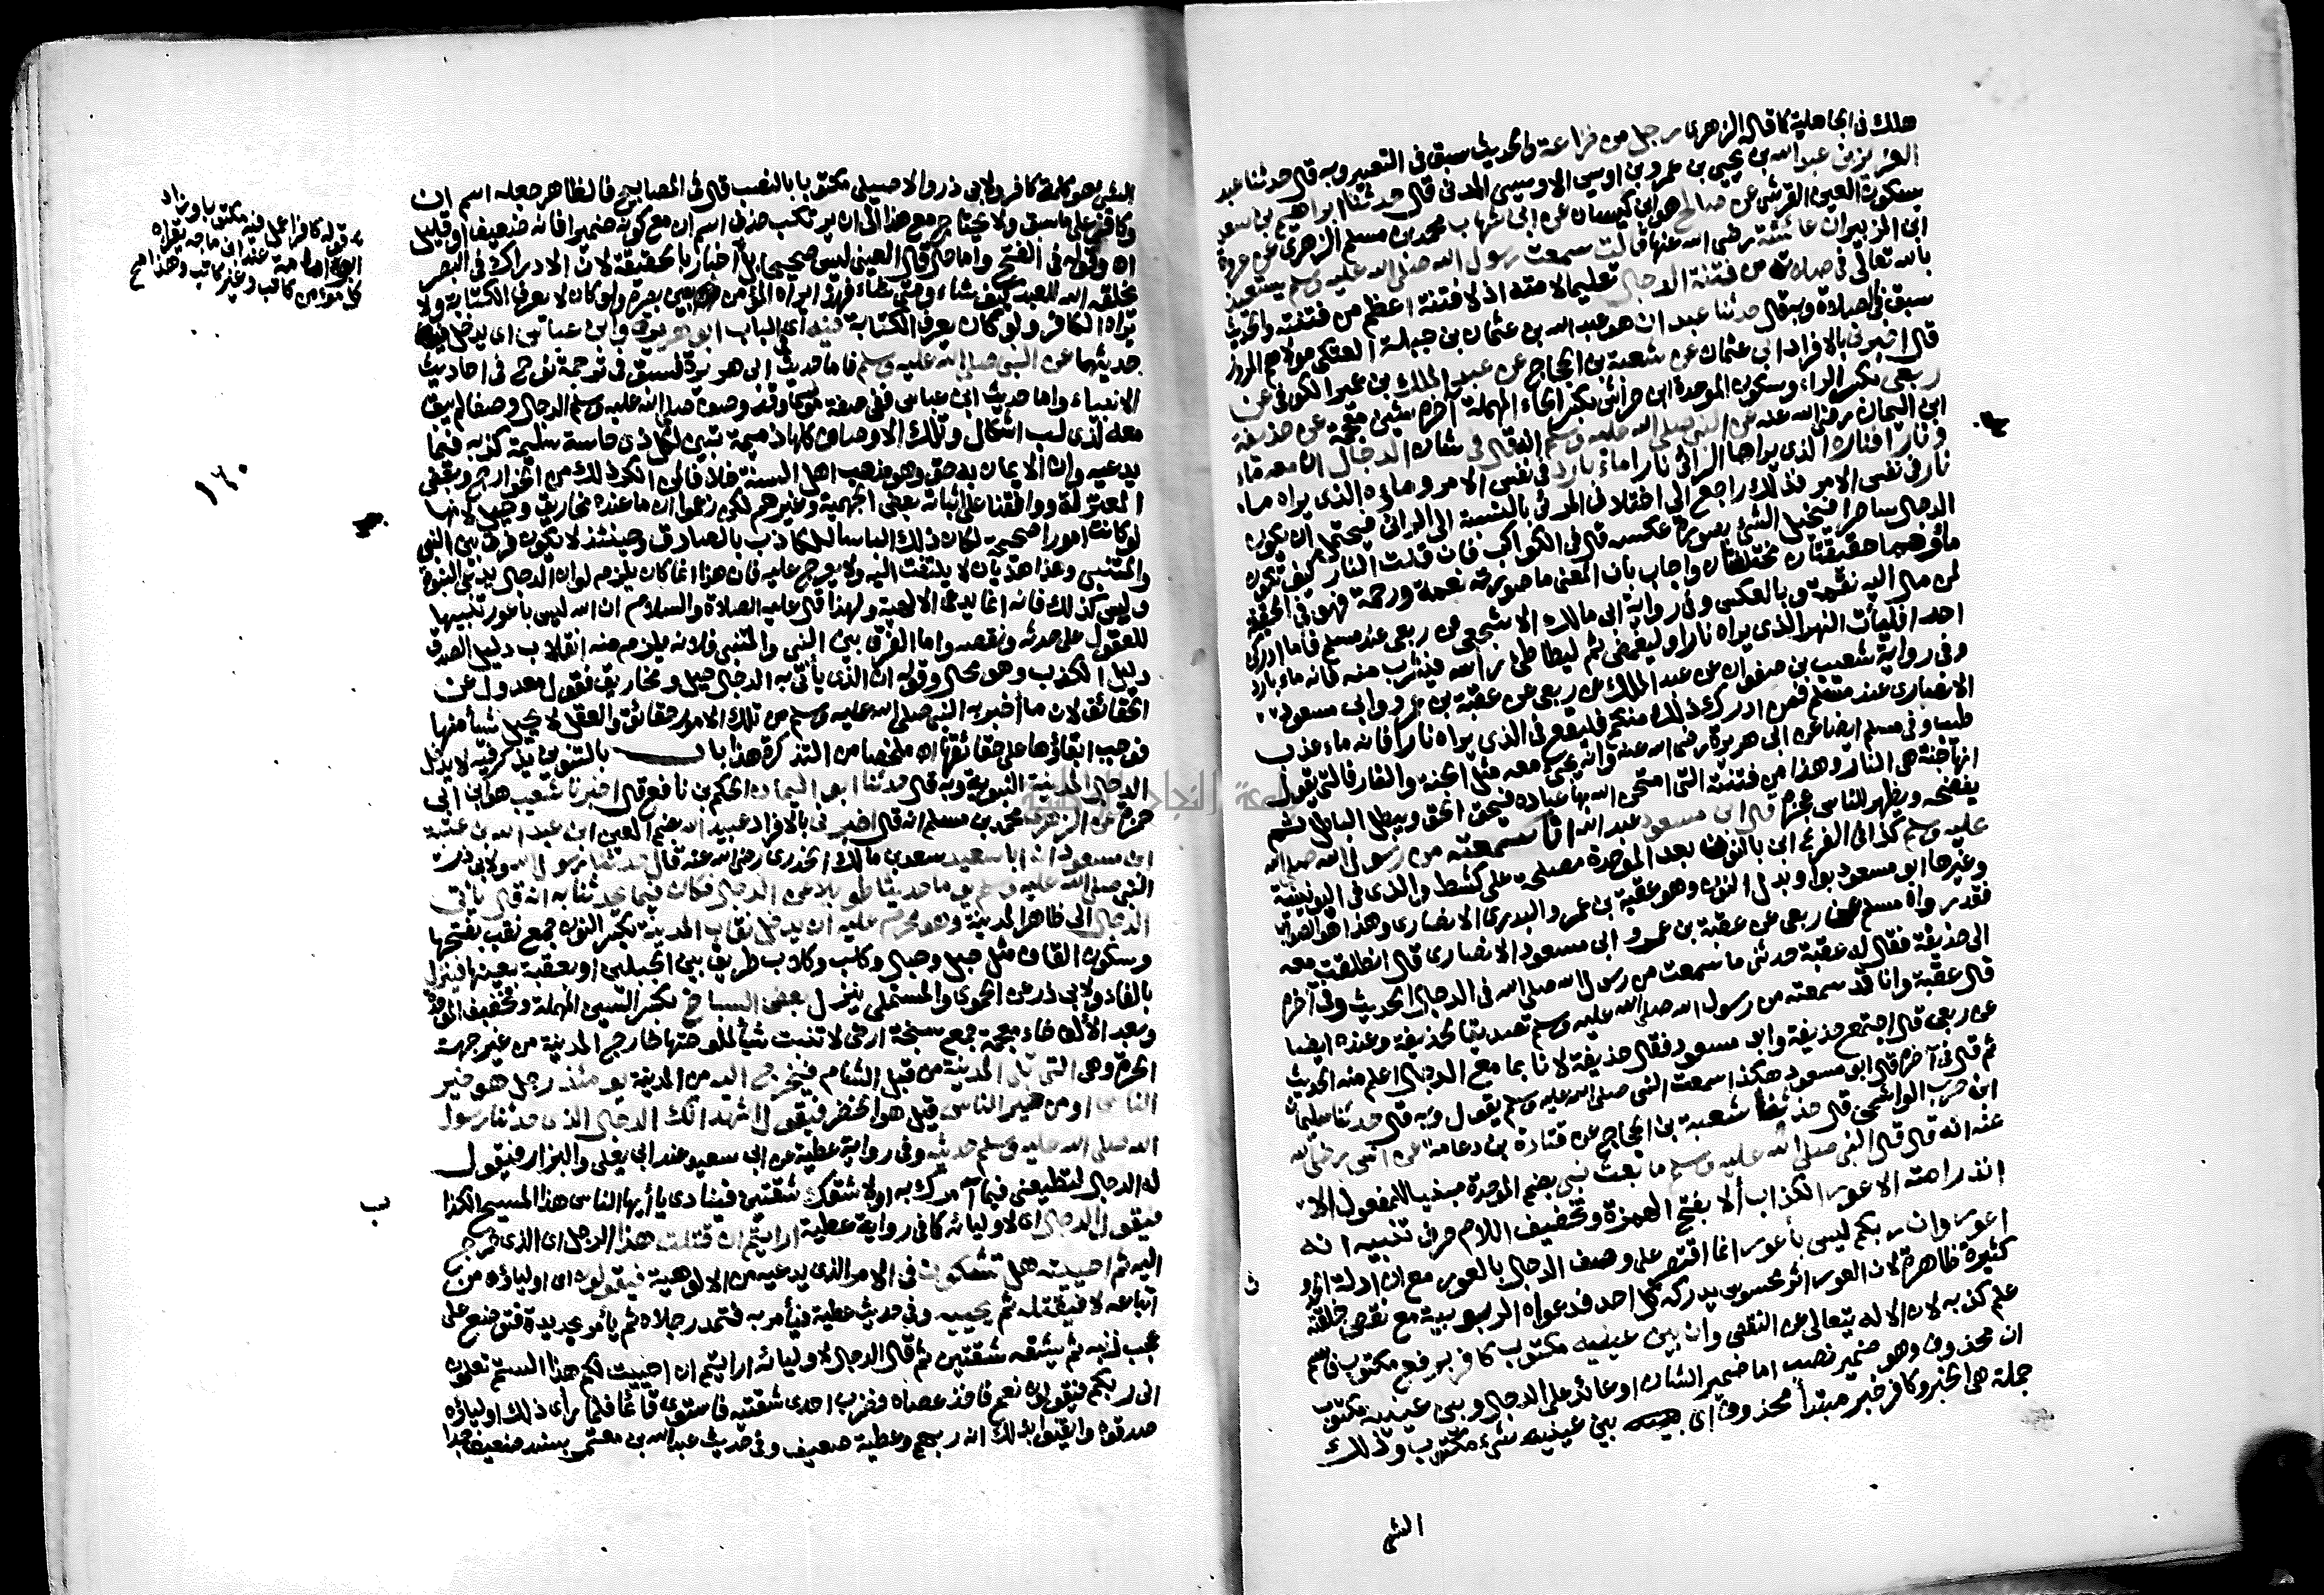 هلك في الجاهلية كما قاله الزهري رجل من خزاعة والحديث سبق في التعبير وبه قال حدثنا عبد
العزيز بن عبد الله بن يحيى بن عمرو بن اويس الاويسي المدني قال حدثنا ابراهيم بن سعد
بسكون العين القرشي عن صالح هو ابن كيسان عن ابن شهاب محمد بن مسلم الزهري عن عروة
ابن الزبير ان عائشة رضي الله عنها قالت سمعت رسول الله صلى الله عليه وسلم يستعيذ
بالله تعالى في صلاته من فتنة الدجال تعليما لامته اذ لا فتنة اعظم من فتنته والحديث
سبق في الصلاة وبه قال حدثنا عبدان هو عبد الله بن عثمان بن جبلة العتكي مولاهم المروزي
قال اخبرني بالافراد ابي عثمان عن شعبة بن الحجاج عن عبد الملك بن عمير الكوفي عن
ربعي بكسر الراء وسكون الموحدة ابن حراش بكسر الحاء المهملة آخره شين معجمة عن حذيفة
ابن اليمان رضي الله عنه عن النبي صلى الله عليه وسلم انه قال في شان الدجال ان معه ماء
ونارا فناره الذي يراها الرائي نارا ماء بارد في نفس الامر وماؤه الذي يراه ماء
نار في نفس الامر فذلك راجع الى اختلاف المرئي بالنسبة الى الرائي فيحتمل ان يكون
الدجال ساحرا فيخيل الشئ بصورة عكسه قال في الكواكب فان قلت النار كيف تكون
ماء وهما حقيقتان مختلفتان واجاب بان المعنى ما صورته نعمة ورحمة فهو في الحقيقة
لمن مال اليه نقمة وبالعكس وفي رواية ابي مالك الاشجعي عن ربعي عند مسلم فاما ادركن
احدا فليأت النهر الذي يراه نارا وليغمض ثم ليطاطئ رأسه فيشرب منه فانه ماء بارد
وفي رواية شعيب بن صفوان عن عبد الملك عن ربعي عن عقبة بن عمرو وابي مسعود
الانصاري عند مسلم فمن ادرك ذلك منكم فليقع في الذي يراه نارا فانه ماء عذب
طيب وفي مسلم ايضا عن ابي هريرة رضي الله عنه وانه يجئ معه مثل الجنة والنار فالتي يقول
انها جنة هي النار وهذا من فتنته التي امتحن الله بها عباده فيحق الحق ويبطل الباطل ثم
يفضحه ويظهر للناس عجزه قال ابن مسعود عبد الله انا سمعته من رسول الله صلى الله
عليه وسلم كذا في الفرع ابن بالنون بعد الموحدة مصلحة على كشط والذي في اليونينية
وغيرها ابو مسعود بواو بدل النون وهو عقبة بن عمرو البدري الانصاري وهذا هو الصواب
فقد رواه مسلم عن ربعي عن عقبة بن عمرو ابي مسعود الانصاري قال انطلقت معه
الى حذيفة فقال له عقبة حدثني ما سمعت من رسول الله صلى الله في الدجال الحديث وفي آخره
قال عقبة وانا قد سمعته من رسول الله صلى الله عليه وسلم تصديقا لحذيفة وعنده ايضا
عن ربعي قال اجتمع حذيفة وابو مسعود فقال حذيفة لانا بما مع الدجال اعلم منه الحديث
ثم قال في آخره قال ابو مسعود هكذا سمعت النبي صلى الله عليه وسلم يقول وبه قال حدثنا سليمان
ابن حرب الواشحي قال حدثنا شعبة بن الحجاج عن قتادة بن دعامة عن انس رضي الله
عنه انه قال قال النبي صلى الله عليه وسلم ما بعث نبي بضم الموحدة مبنيا للمفعول الا
انذر امته الاعور الكذاب ألا بفتح الهمزة وتخفيف اللام حرف تنبيه انه
اعور وان ربكم ليس بأعور انما اقتصر على وصف الدجال بالعور مع ان ادلة الحدوث
كثيرة ظاهرة لان العور اثر محسوس يدركه كل احد فدعواه الربوبية مع نقص خلقته
علم كذبه لان الاله يتعالى عن النقص وان بين عينيه مكتوب كافر برفع مكتوب فاسم
ان محذوف وهو ضمير نصب اما ضمير الشان او عائد على الدجال وبين عينيه مكتوب
جملة هي الخبر وكافر خبر مبتدأ محذوف اي بين عينيه شيء مكتوب وذلك
الشئ
الشئ هو كلمة كافر ولابي ذر والاصيلي مكتوبا بالنصب قال في المصابيح فالظاهر جعله اسم ان
وكافر على ما سبق ولا يحتاج مع هذا الى ان يرتكب حذف اسم ان مع كونه ضميرا فانه ضعيف او قليل
اه وقوله في الفتح واما قال العيني ليس صحيحا بل اخبار بالحقيقة لان الادراك في البصر
يخلقه الله للعبد كيف شاء ومتى شاء فهذا يراه المؤمن بعين بصره ولو كان لا يعرف الكتابة ولا
يراه الكافر ولو كان يعرف الكتابة فيه اي الباب ابو هريرة وابن عباس اي يدخل فيه
حديثهما عن النبي صلى الله عليه وسلم فاما حديث ابي هريرة فسبق في ترجمة نوح في احاديث
الانبياء واما حديث ابن عباس ففي صفة موسى وقد وصف صلى الله عليه وسلم الدجال وصفا لم يبق
معه لذي لب اشكال وتلك الاوصاف كلها ذميمة تبين لكل ذي حاسة سليمة كذبه فيما
يدعيه وان الايمان به حق وهو مذهب اهل السنة خلافا لمن انكر ذلك من الخوارج وبعض
المعتزلة ووافقنا على اثباته بعض الجهمية وغيرهم لكن زعموا ان ما عنده مخاريق وحيل لانها
لو كانت امورا صحيحة لكان ذلك الباسا للكاذب بالصادق وحينئذ لا يكون فرق بين النبي
والمتنبي وهذا هذيان لا يلتفت اليه ولا يعرج عليه فان هذا انما كان يلزم لو ان الدجال يدعي النبوة
وليس كذلك فانه انما يدعي الالهية ولهذا قال عليه الصلاة والسلام ان الله ليس باعور تنبيها
للعقول على حدثه ونقصه واما الفرق بين النبي والمتنبي فلانه يلزم منه انقلاب دليل الصدق
دليل الكذب وهو محال وقوله ان الذي يأتي به الدجال حيل ومخاريق فقول معدول عن
الحقائق لان ما اخبر به النبي صلى الله عليه وسلم من تلك الامور حقائق والعقل لا يحيل شيأ منها
فوجب ابقاؤها على حقائقها اه ملخصا من التذكرة هذا باب بالتنوين يذكر فيه لا يدخل
الدجال المدينة النبوية وبه قال حدثنا ابو اليمان الحكم بن نافع قال اخبرنا شعيب هو ابن ابي
حمزة عن الزهري محمد بن مسلم انه قال اخبرني بالافراد عبيد الله بضم العين ابن عبد الله بن عتبة
ابن مسعود ان ابا سعيد سعد بن مالك الخدري رضي الله عنه قال حدثنا رسول الله ولابي ذر
النبي صلى الله عليه وسلم يوما حديثا طويلا عن الدجال فكان فيما يحدثنا به انه قال يأتي
الدجال الى ظاهر المدينة وهو محرم عليه ان يدخل نقاب المدينة بكسر النون جمع نقب بفتحها
وسكون القاف مثل حبل وحبال وكلب وكلاب طريق بين الجبلين او بقعة بعينها فينزل
بالفاء ولابي ذر عن الحموي والمستملي ينزل بعض السباخ بكسر السين المهملة وتخفيف الموحدة
وبعد الألف خاء معجمة جمع سبخة ارض لا تنبت شيأ لملوحتها خارج المدينة من غير جهة
الحرة وهي التي تلي المدينة من قبل الشام فيخرج اليه من المدينة يومئذ رجل هو خير
الناس او من خير الناس قيل هو الخضر فيقول اشهد انك الدجال الذي حدثنا رسول
الله صلى الله عليه وسلم حديثه وفي رواية عطية عن ابي سعيد عند ابي يعلى والبزار فيقول
له الدجال لتطيعني فيما آمرك به او لاشقك شقتين فينادي يا ايها الناس هذا المسيح الكذاب
فيقول الدجال اي لاوليائه كما في رواية عطية ارايتم ان قتلت هذا الرجل اي الذي خرج
اليه ثم احييته هل تشكون في الامر الذي يدعيه من الالوهية فيقولون اي اولياؤه من
اتباعه لا فيقتله ثم يحييه وفي حديث عطية فيأمر به فتمد رجلاه ثم يأمر بحديدة فتوضع على
عجب ذنبه ثم يشقه شقتين ثم قال الدجال لاوليائه ارايتم ان احييت لكم هذا الستم تعلمون
اني ربكم فيقولون نعم فاخذ عصاه فضرب احدى شقتيه فاستوى قائما فلما رأى ذلك اولياؤه
صدقوه وايقنوا بذلك انه ربهم وعطية ضعيف وفي حديث عبد الله بن معتمر بسند ضعيف جدا
قوله كافر اعلى فيه مكتوبا وزاد
ابو امامة عند ابن ماجه يقراه
كل مؤمن كاتب وغير كاتب وهذا
١٦٠